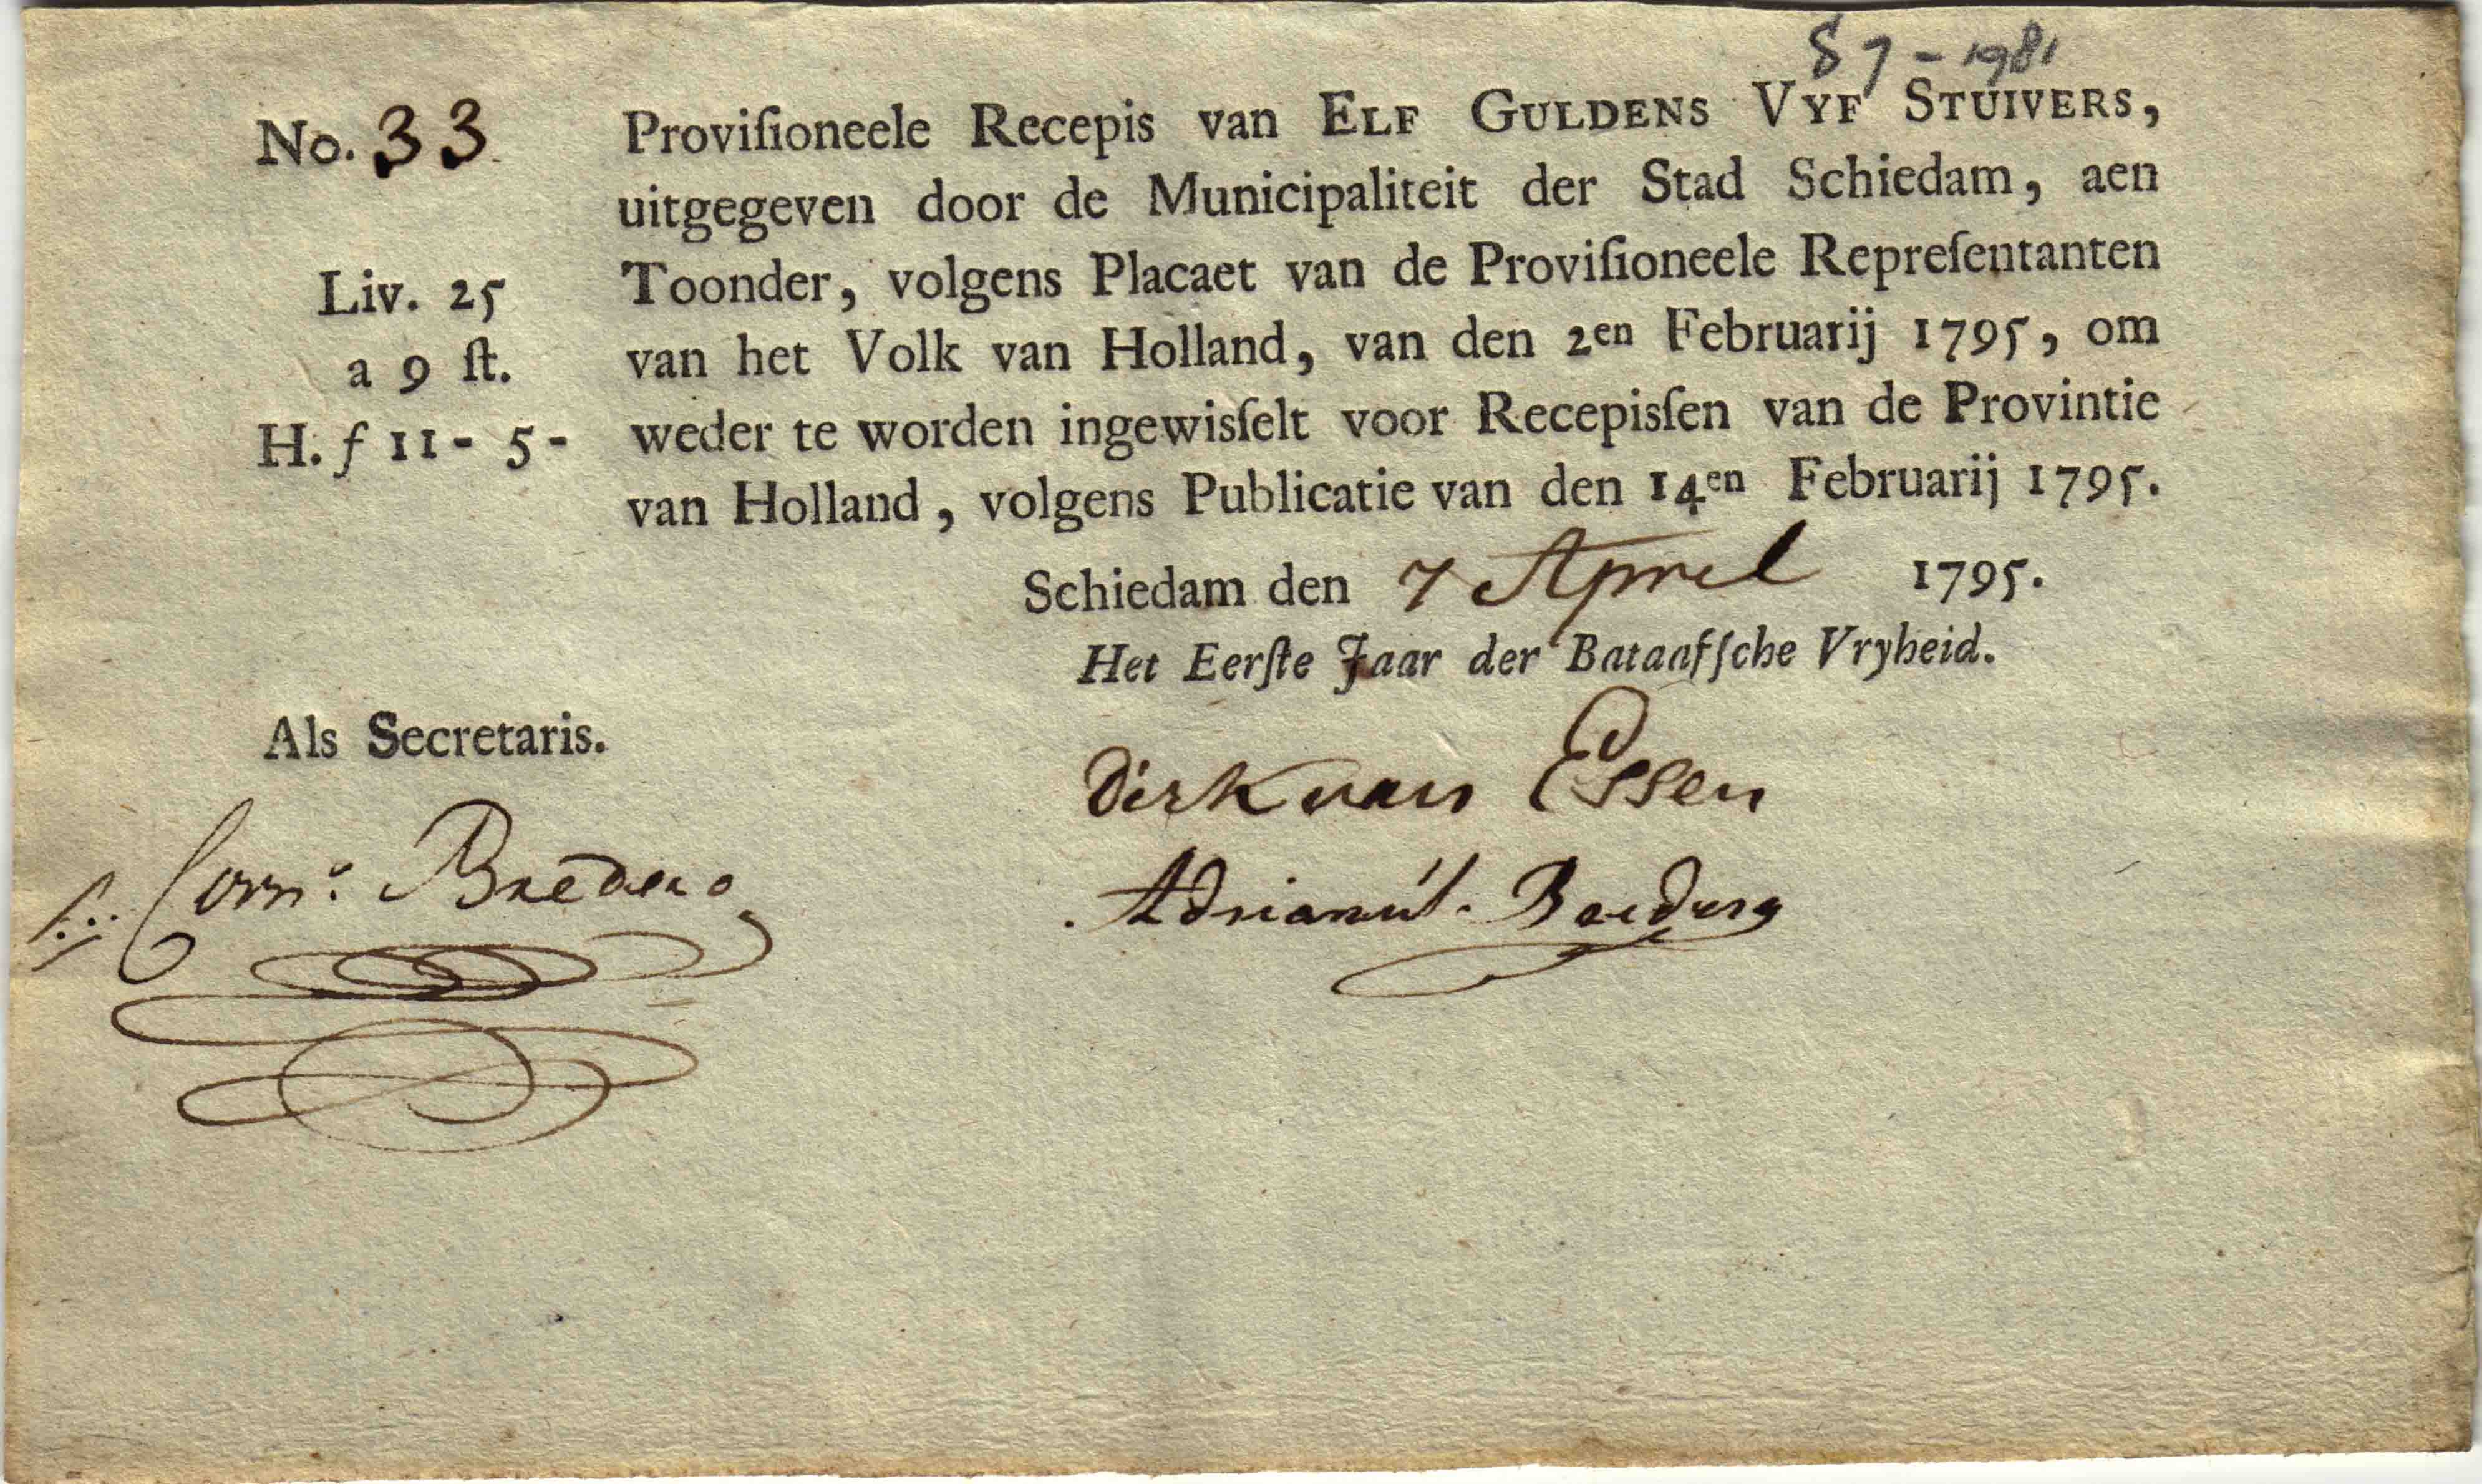 87-1981
No. 33. Proviſioneele Recepis van ELF GULDENS VYF STUIVERS,
uitgegeven door de Municipaliteit der Stad Schiedam, aen
Liv. 25 Toonder, volgens Placaet van de Proviſioneele Repreſentanten
a 9 ſt. van het Volk van Holland, van den 2en Februarij 1795, om
H. f 11 - 5 - weder te worden ingewisſelt voor Recepisſen van de Provintie
van Holland, volgens Publicatie van den 14en Februarij 1795.
Schiedam den 7 April 1795.
Het Eerſte Jaar der Bataafſche Vryheid.
Als Secretaris.
Dirk van Essen
Corn:s Bredero
Adrianus